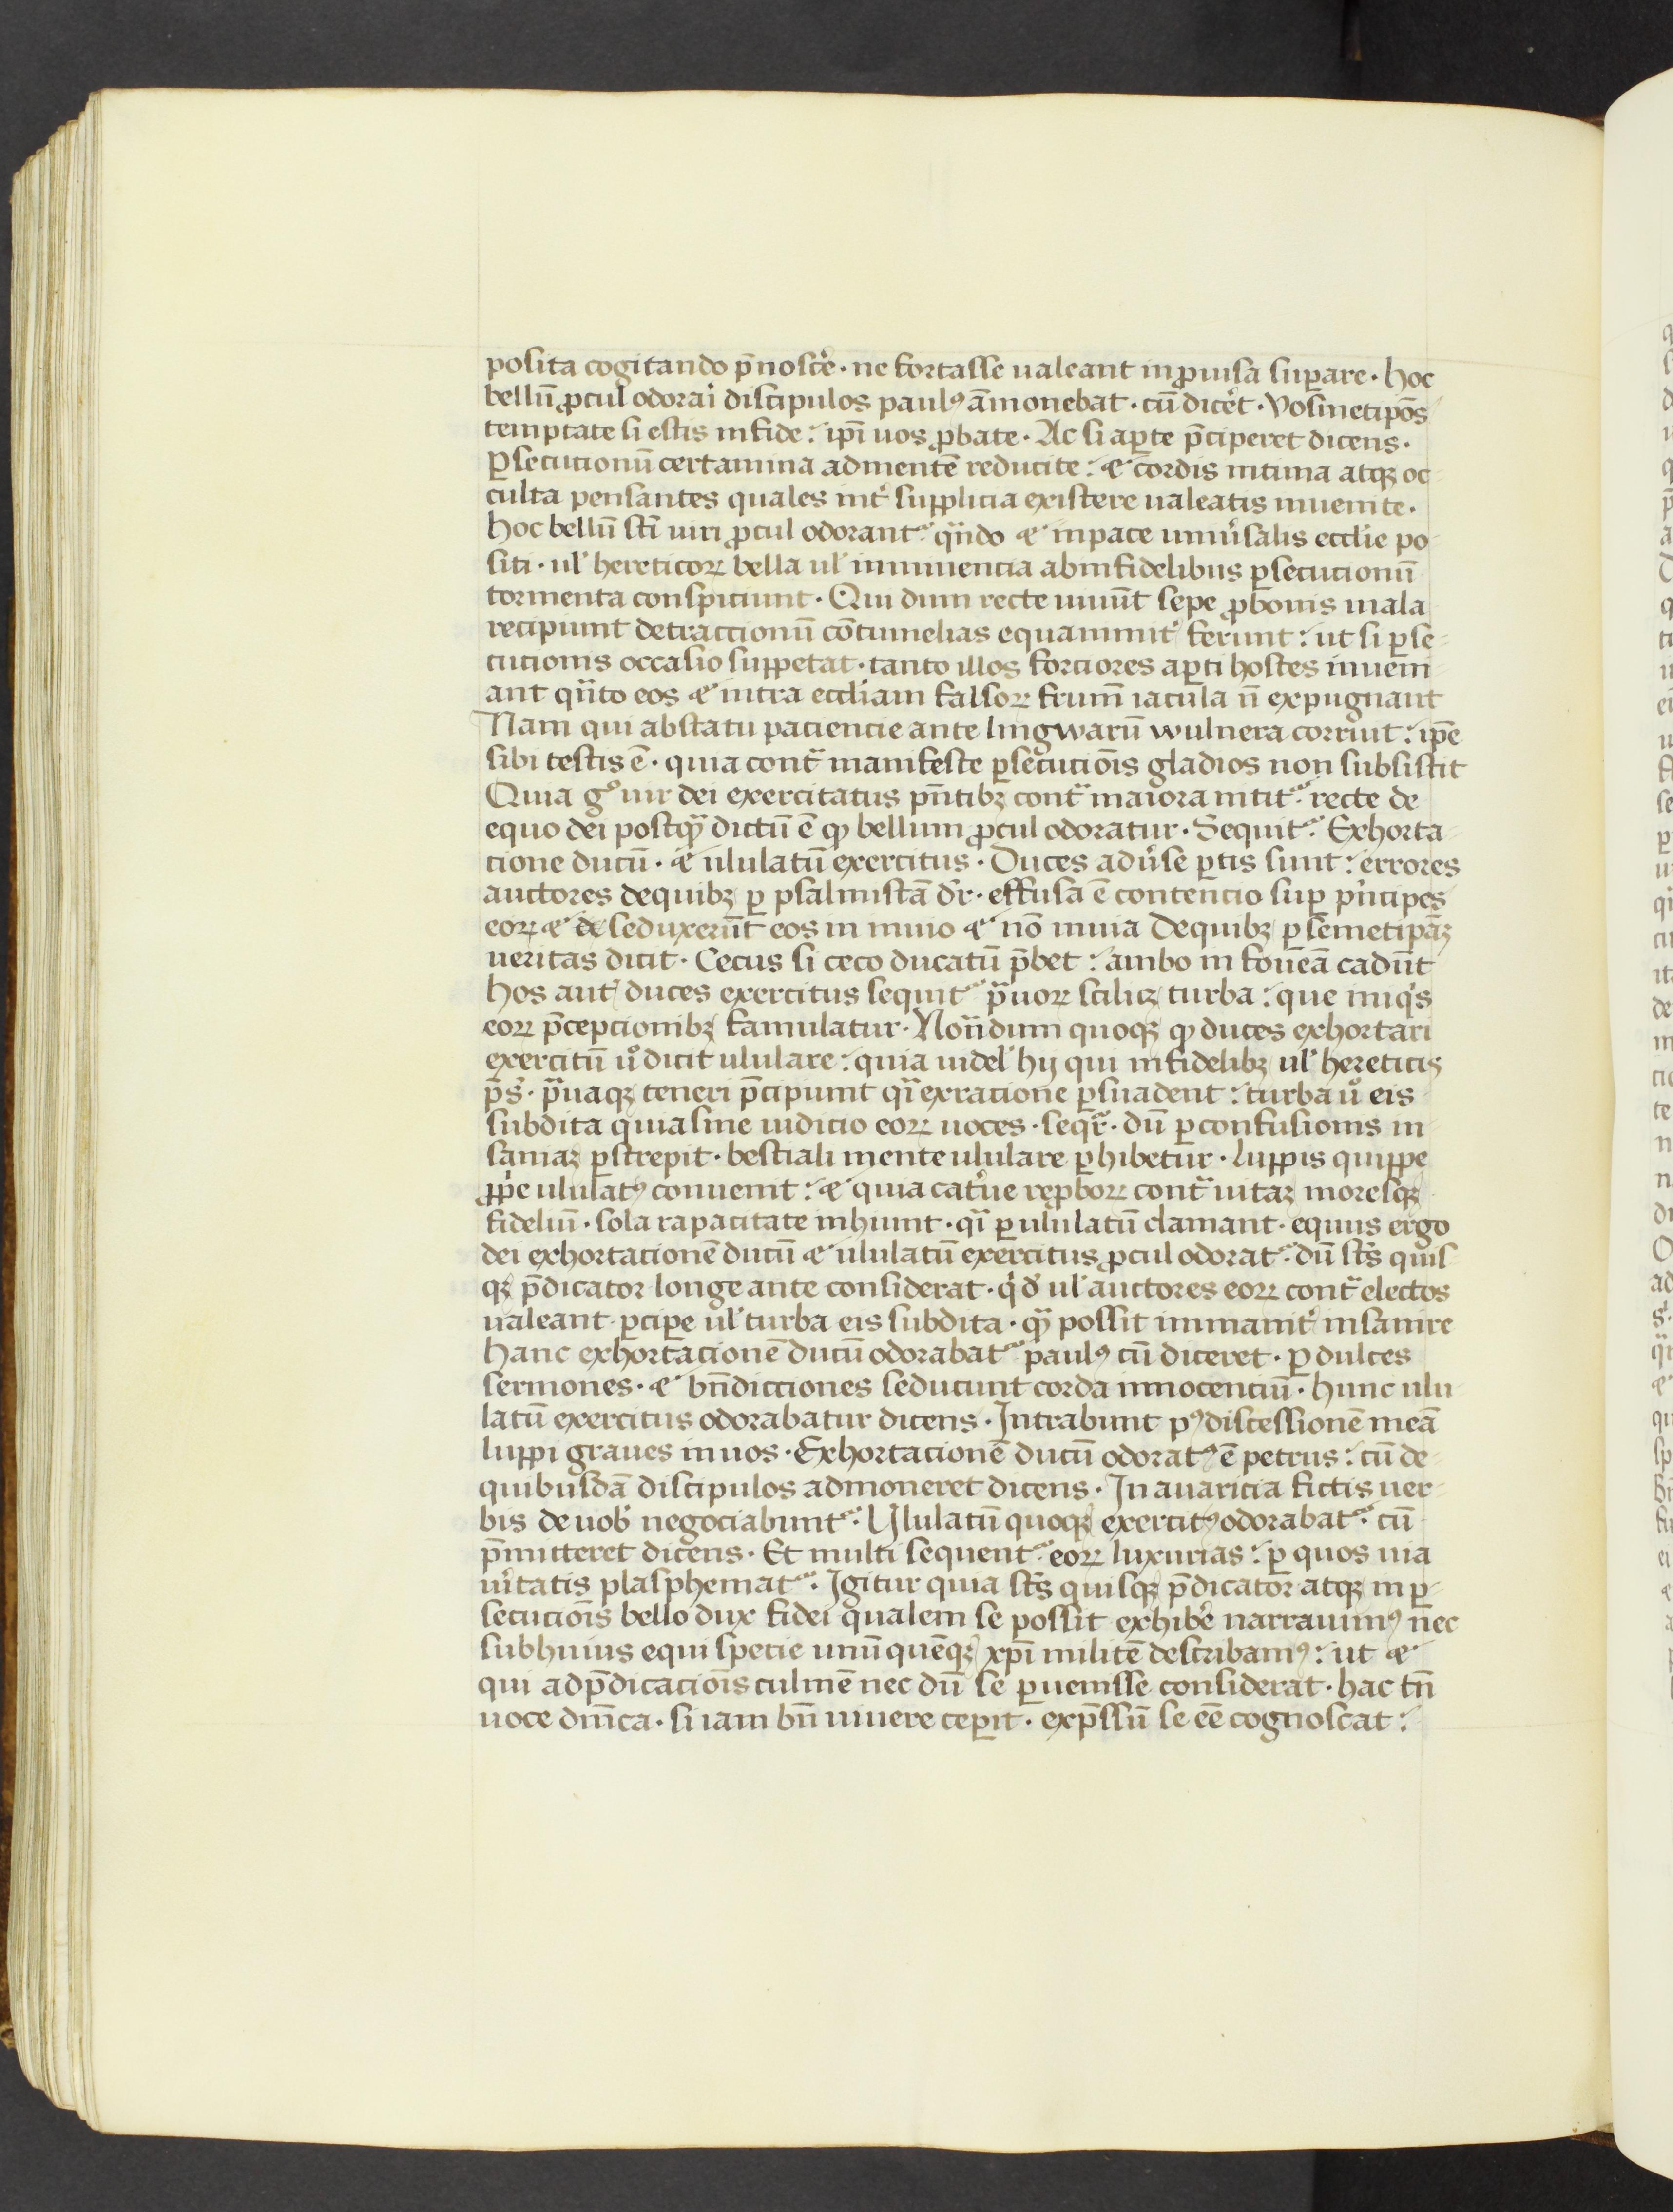 posita cogitando p̄nosc̉e · ne fortasse ualeant inꝓuisa suꝑare · hoc
bellū ꝓcul odorai discipulos paulꝰ āmonebat · cū dic̉et · Vosmetip̄os
temptate si estis infide : ip̄i uos ꝓbate · Ac si aꝑte p̄ciperet dicens ·
ꝑsecucionū certamina admentē reducite : ⁊ cordis intima atqꝫ oc
culta pensantes quales int̉ supplicia existere ualeatis inuenite ·
hoc bellū sc̄i uiri ꝓcul odorant᷑ : qͣndo ⁊ inpace uniủsalis eccl̄ie po
siti · ul̉ hereticoꝝ bella ul̉ imminencia abinfidelibus ꝑsecucionū
tormenta conspiciunt · Qui dum recte uiuūt sepe ꝓbonis mala
recipiunt detraccionū cōtumelias equanimit̉ ferunt : ut si ꝑse-
cucionis occasio suppetat · tanto illos forciores aꝑti hostes inueni
ant qͣnto eos ⁊ intra eccl̄iam falsoꝝ fr̄um iacula n̄ expugnant
Nam qui abstatu paciencie ante lingwarū wulnera corruit : ip̄e
sibi testis ē · quia contͣ manifeste ꝑsecucio͞is gladios non subsistit
Quia gͦ uir dei exercitatus p̄ntibꝫ contͣ maiora nitit᷑ : recte de
equo dei postqͣ dictū ē ꝙ bellum ꝓcul odoratur · Sequit᷑ : Exhorta-
cione ducū · ⁊ ululatū exercitus · Duces adủse ꝑtis sunt : errores
auctores dequibꝫ ꝑ psalmistā dr̄ · effusa ē contencio suꝑ pͥncipes
eoꝝ ⁊ de seduxerūt eos in inuio ⁊ nō inuia Dequibꝫ ꝑ semetip̄aꝫ
ueritas dicit · Cecus si ceco ducatū p̄bet : ambo in foueā cadūt
hos aut̄ duces exercitus sequit᷑ pͣuoꝝ scilicꝫ turba : que iniqͥs
eoꝝ p̄cepcionibꝫ famulatur · Notandum quoqꝫ ꝙ duces exhortari
exercitū uͦ dicit ululare : quia uidel̉ hij qui infidelibꝫ ul̉ hereticis
p̄s̉ · pͣuaqꝫ teneri p̄cipiunt qͣ exracione ꝑsuadent : turba uͦ eis
subdita quia sine iudicio eoꝝ uoces · seqͬ · dū ꝑ confusionis in
saniaꝫ ꝑstrepit · bestiali mente ululare ꝑhibetur · luppis quippe
ꝓp̉e ululatꝰ conuenit : ⁊ quia cat̉ue reꝓboꝝ contͣ uitaꝫ moresqꝫ
fideliū · sola rapacitate inhiunt · qͣ ꝑ ululatū clamant · equus ergo
dei exhortacionē ducū ⁊ ululatū exercitus ꝓcul odorat᷑ : dū sc̄s quis
qꝫ p̄dicator longe ante considerat · qͥd ul̉ auctores eoꝝ contͣ electos
ualeant ꝑciꝑe ul̉ turba eis subdita · qͣ possit immanit̉ insanire
hanc exhortacionē ducū odorabat᷑ paulꝰ cū diceret · ꝑ dulces
sermones · ⁊ bn̄dicciones seducunt corda innocenciū · hunc ulu
latū exercitus odorabatur dicens · Intrabunt pꝰ discessionē meā
luppi graues in uos · Exhortacionē ducū odoratꝰ ē petrus : cū de-
quibusdā discipulos admoneret dicens · In auaricia fictis uer-
bis de uob̉ negociabunt᷑ : Ululatū quoqꝫ exercitꝰ odorabat᷑ : cū
p̄mitteret dicens · Et multi sequent᷑ eoꝝ luxurias : ꝑ quos uia
ủitatis plasphemat᷑ · Igitur quia sc̄s quisqꝫ p̄dicator atqꝫ in ꝑ-
secucio͞is bello dux fidei qualem se possit exhib̉e narrauimꝰ nec
subhuius equi specie unū quēqꝫ xp̄i militē describamꝰ : ut ⁊
qui adp̄dicacio͞is culmē nec dū se ꝑuenisse considerat · hac tn̄
uoce dn̄ica · si iam bn̄ uiuere ceꝑit · exp̄ssū se eē cognoscat :